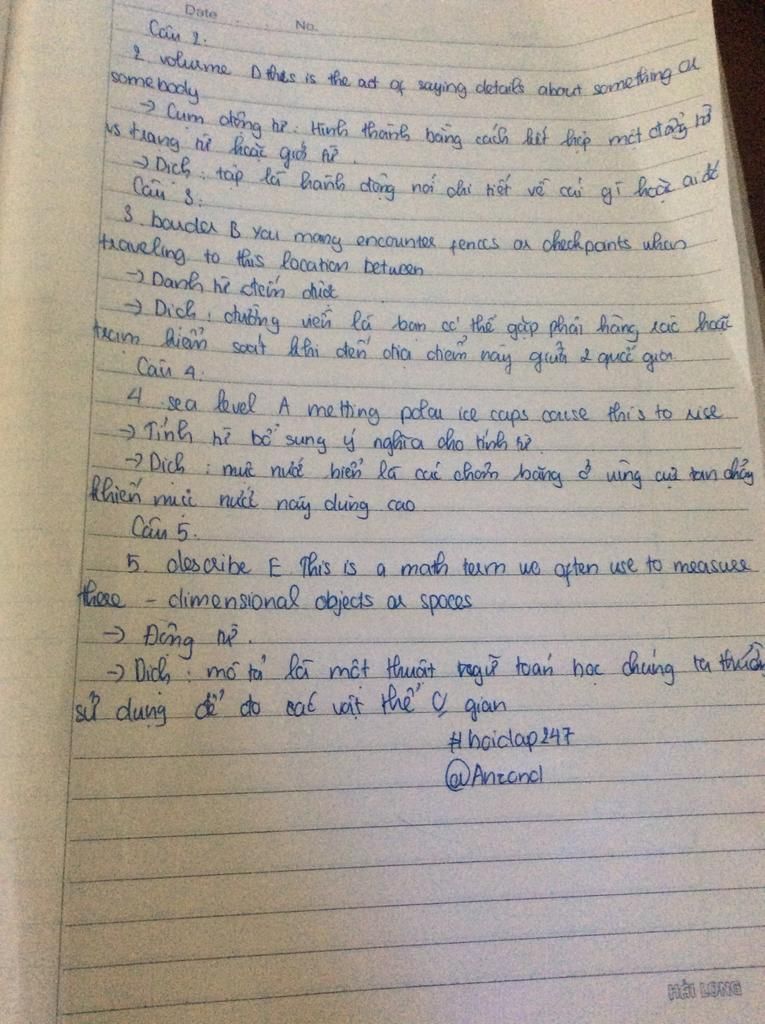 Date No.
Câu 2.
2. volume D this is the act of saying details about something or
somebody
→ Cụm động từ: Hình thành bằng cách kết hợp một động từ
vs trạng từ hoặc giới từ.
→ Dịch: tập là hành động nói chi tiết về cái gì hoặc ai đó
Câu 3.
3. border B you many encounter fences or checkpoints when
traveling to this location between
→ Danh từ đếm được
→ Dịch: đường viền là bạn có thể gặp phải hàng rào hoặc
trạm kiểm soát khi đến địa điểm này giữa 2 quốc gia
Câu 4.
4. sea level A melting polar ice caps cause this to rise
→ Tính từ bổ sung ý nghĩa cho tính từ.
→ Dịch: mực nước biển là các chỏm băng ở vùng cực tan chảy
khiến mực nước này dâng cao
Câu 5.
5. describe E This is a math term we often use to measure
there - dimensional objects or spaces
→ Động từ.
→ Dịch: mô tả là một thuật ngữ toán học chúng ta thường
sử dụng để đo các vật thể gian
#hoidap247
@Anzond
HẢI LONG